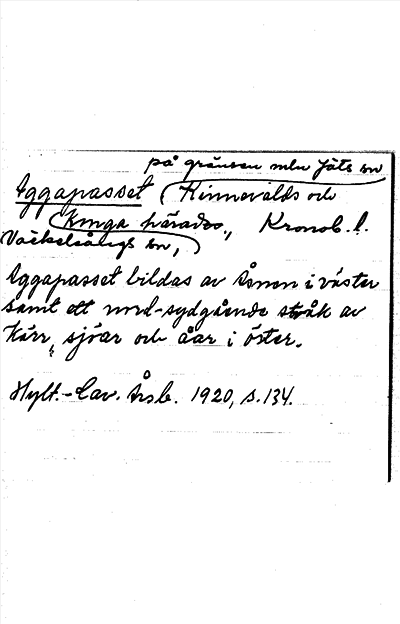 på gränsen mln Jäts sn
Aggapasset (Kinnevalds och
Konga härader, Kronob. l.
Väckelsångs sn,)
Aggapasset bildas av Åsnen i väster
samt ett nord-sydgående stråk av
Kärr, sjöar och åar i öster.
Hylt.-Cav. Årsb. 1920, s. 134.